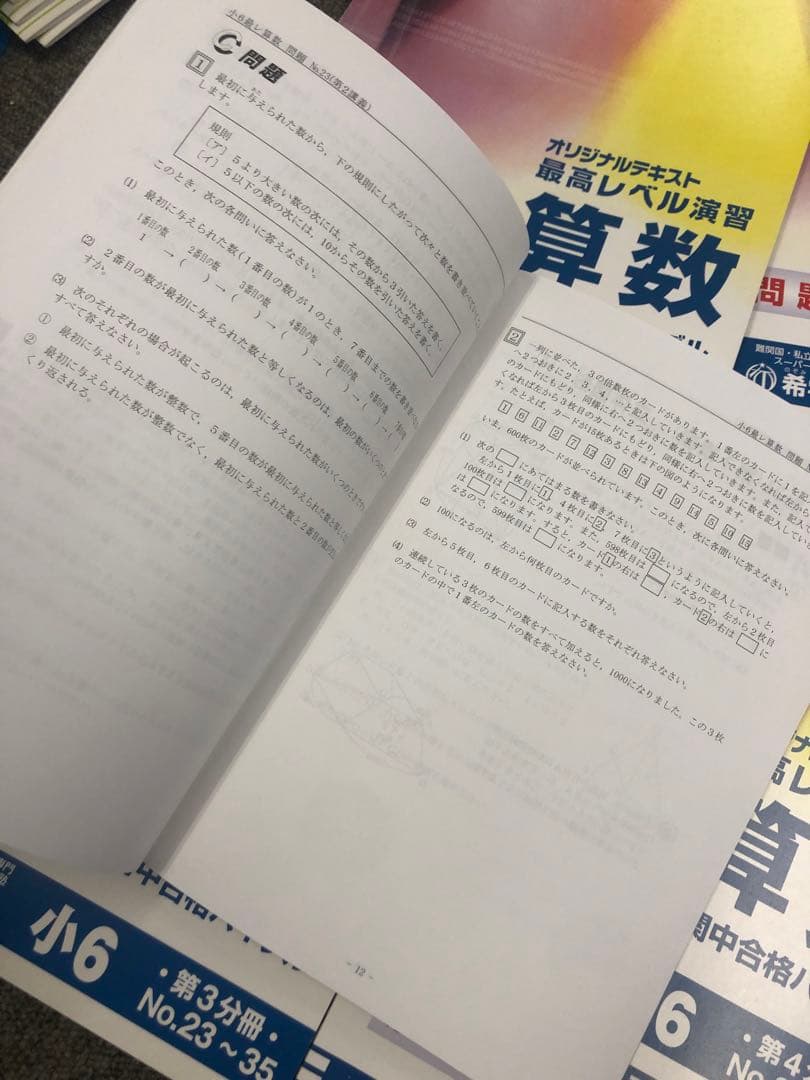 小6最レ算数 問題 No.23(第2講義)
C 問題
1 最初に与えられた数から，下の規則にしたがって次々と数を書き並べてい
します。
規則
〔ア〕5より大きい数の次には，その数から3引いた答えを書く。
〔イ〕5以下の数の次には，10からその数を引いた答えを書く。
このとき，次の各問いに答えなさい。
(1) 最初に与えられた数(1番目の数)が1のとき，7番目までの数を書き
1番目の数 2番目の数 3番目の数 4番目の数 5番目の数 6番目の数
1 →( )→( )→( )→( )→( )→(
(2) 2番目の数が最初に与えられた数と等しくなるのは，最初の数がいくつのと
すか。
(3) 次のそれぞれの場合が起こるのは，最初に与えられた数がいくつのときですか。
すべて答えなさい。
① 最初に与えられた数が整数で，5番目の数が最初に与えられた数と等しくな
② 最初に与えられた数が整数でなく，最初に与えられた数と2番目の数が
くり返される。
小6最レ算数 問題
2 一列に並べた，3の倍数枚のカードがあります。1番左のカードに1を
へ2つおきに2，3，4，…と記入していきます。記入できなくなれば左から
のカードにもどり，同様に右へ2つおきに数を記入していきます。また，記入で
くなれば左から3枚目のカードにもどり，同様に右へ2つおきに数を記入してい
す。たとえば，カードが15枚あるときは下の図のようになります。
1 6 11 2 7 12 3 8 13 4 9 14 5 10 15
いま，600枚のカードが並べられています。このとき，次に各問いに答えなさい。
(1) 次の□にあてはまる数を書きなさい。
左から1枚目に1，4枚目に2，7枚目に3というように記入していくと，
100枚目は□になります。また，598枚目は□になるので，左から2枚目
は□になります。すると，カード1の右は□，カード2の右は□に
なるので，599枚目は□になります。
(2) 100になるのは，左から何枚目のカードですか。
(3) 左から5枚目，6枚目のカードに記入する数をそれぞれ答えなさい。
(4) 連続している3枚のカードの数をすべて加えると，1000になりました。この3枚
のカードの中で1番左のカードの数を答えなさい。
- 12 -
オリジナルテキスト
最高レベル演習
算数
問題
難関国・私立
スーパー
希
小6
・第3分冊・
No.23～35
高レ
算
関中合格ハ
6
・第4